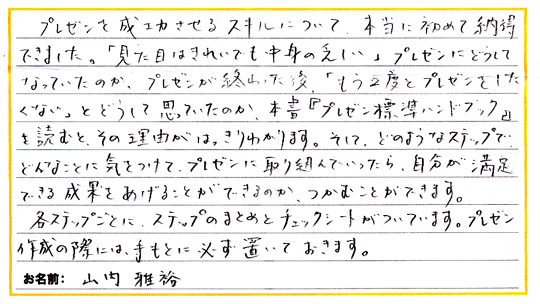 プレゼンを成功させるスキルについて、本当に初めて納得
できました。「見た目はきれいでも中身のえしい」プレゼンにどうして
なっていたのか、プレゼンが終わった後、「もう2度とプレゼンをした
くない」とどうして思っていたのか、本書『プレゼン標準ハンドブック』
を読むと、その理由がはっきりわかります。そして、どのようなステップで
どんなことに気をつけて、プレゼンに取り組んでいったら、自分が満足
できる成果をあげることができるのか、つかむことができます。
各ステップごとに、ステップのまとめとチェックシートがついています。プレゼン
作成の際には、手もとに必ず置いておきます。
お名前: 山内 雅裕